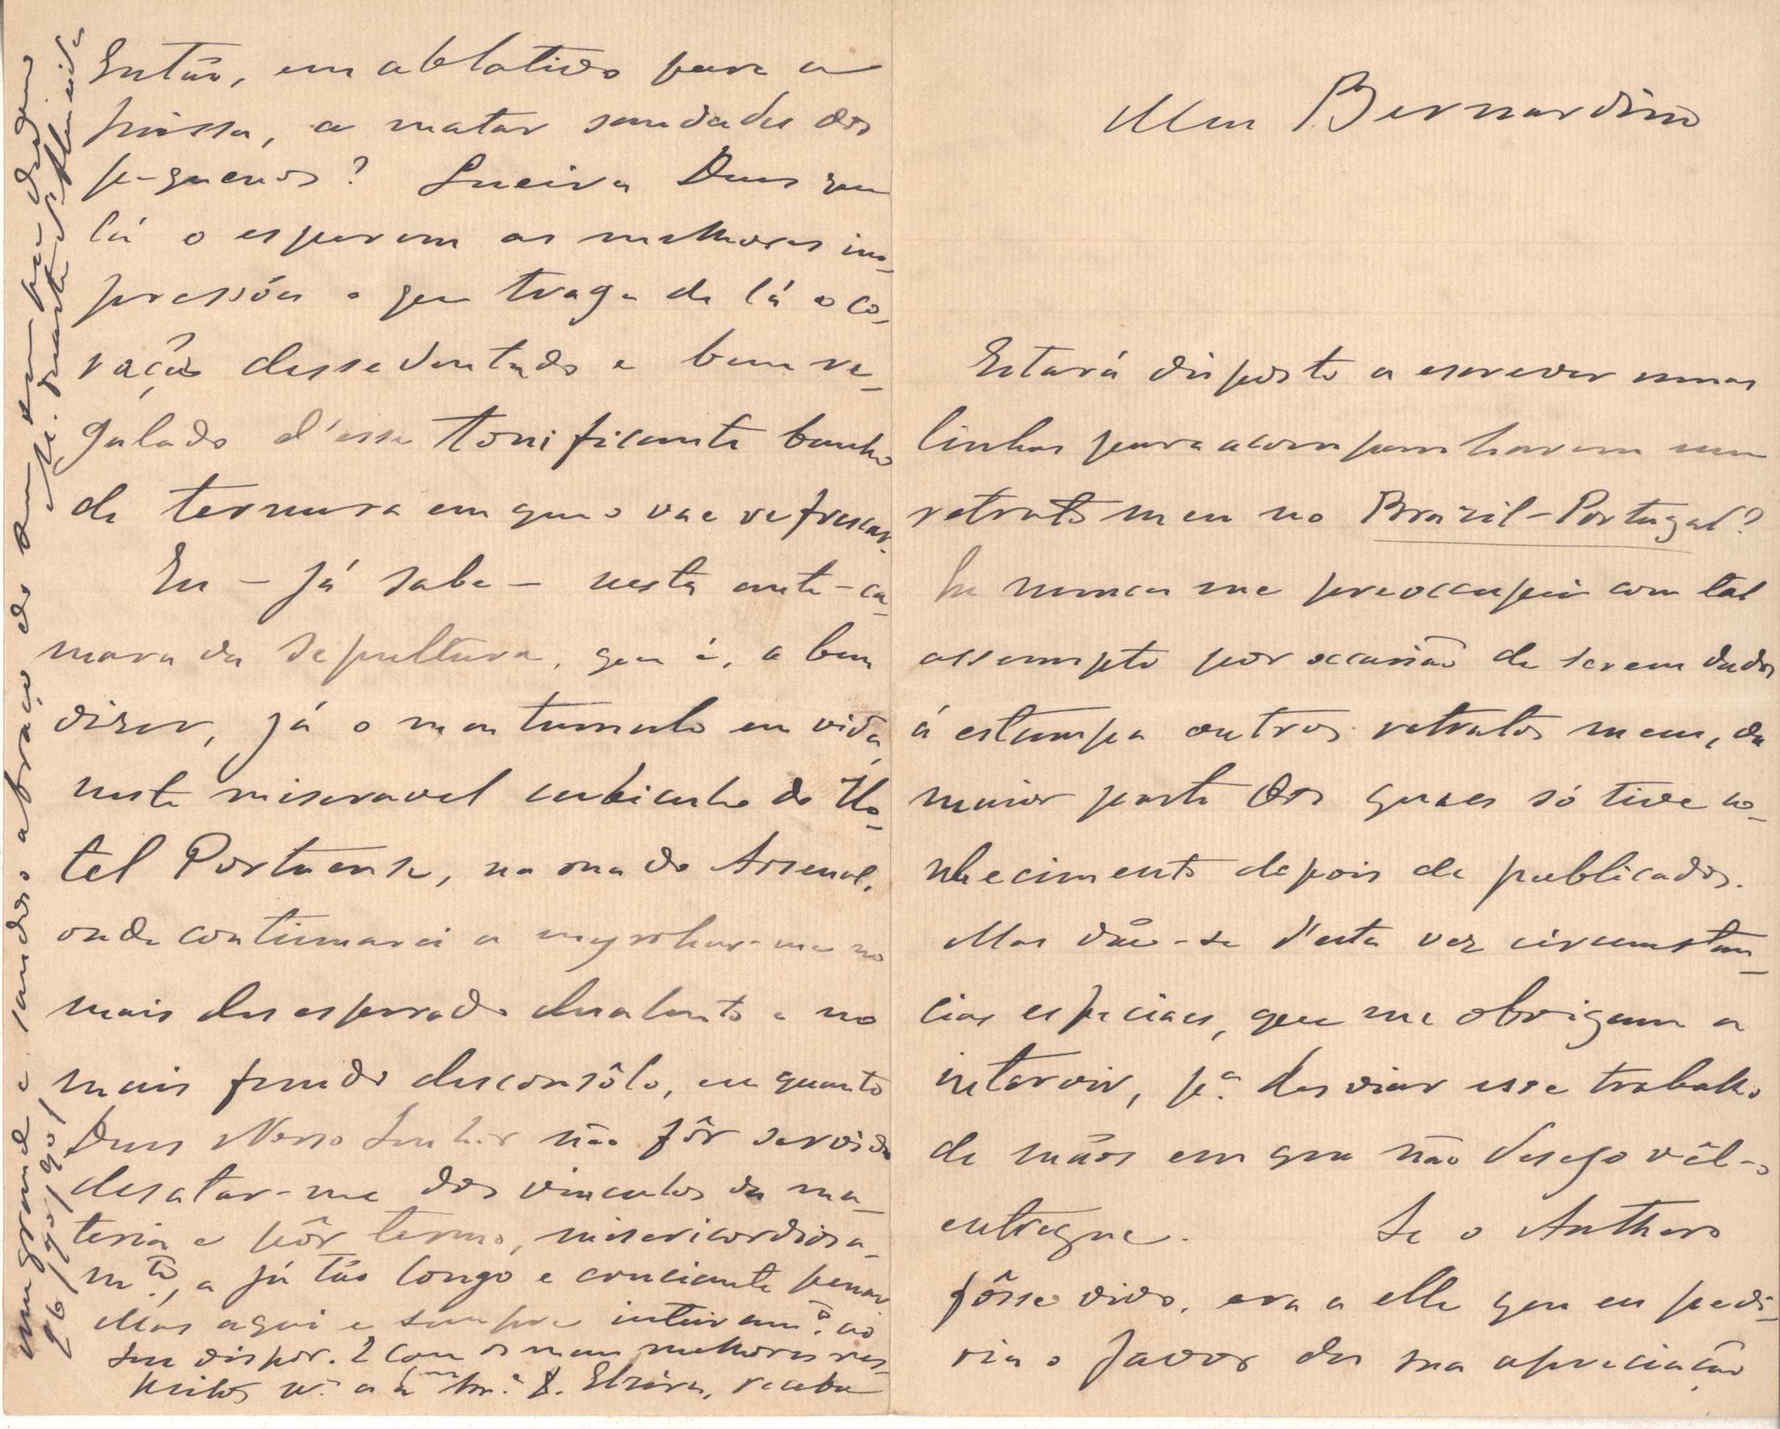 Meu Bernardino
Estará disposto a escrever umas
linhas para acompanharem um
retrato meu no Brazil-Portugal?
Eu nunca me preoccupei com tal
assumpto por occasião de serem dados
á estampa outros retratos meus, da
maior parte dos quaes só tive co-
nhecimento depois de publicados.
Mas dão-se d'esta vez circumstan-
cias especiaes, que me obrigam a
intervir, pª desviar esse trabalho
de mãos em que não desejo vêl-o
entregue. Se o Anthero
fôsse vivo, era a elle que eu pedi-
ria o favor da sua apreciação
Então, em ablativo para a
, a matar saudades dos
pequenos? Queira Deus que
lá o esperem as melhores im-
pressões e que traga de lá o co-
ração dessedentado e bem re-
galado d'esse tonificante banho
de ternura em que o vae refrescar.
Eu – já sabe – nesta ante-ca-
mara da sepultura, que é, a bem
dizer, já o meu tumulo em vida,
neste miseravel cubiculo do Ho-
tel Portuense, na rua do Arsenal,
onde continuarei a myrrhar-me no
mais desesperado desalento e no
mais fundo desconsôlo, emquanto
Deus Nosso Senhor não fôr servido
desatar-me dos vinculos da ma-
teria e pôr termo, misericordiosa-
mte, a já tão longo e cruciante penar.
Mas aqui e sempre inteiramte ao
seu dispor. E com os meus melhores res-
peitos pª a Exmª Srª D. Elzira, receba
um grande e saudoso abraço do seu
26/90/901